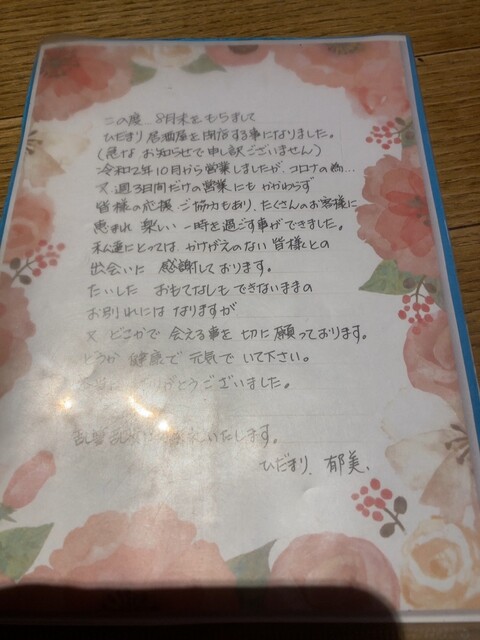 この度、8月末をもちまして
ひだまり居酒屋を閉店する事になりました。
(急な お知らせで申し訳ございません)
令和2年10月から営業しましたが、コロナの為…
又、週3日間だけの営業にも かかわらず
皆様の応援、ご協力もあり、たくさんのお客様に
恵まれ 楽しい 一時を過ごす事ができました。
私達にとっては かけがえのない 皆様との
出会いに 感謝しております。
たいした おもてなしも できないままの
お別れには なりますが
又 どこかで 会える事を 切に 願っております。
どうか 健康で 元気で いて下さい。
ありがとうございました。
乱筆乱文 いたします。
ひだまり、郁美、